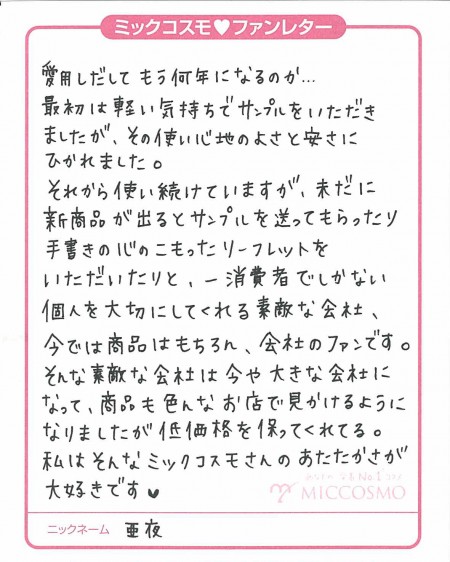 ミックコスモ♥ファンレター
愛用しだしてもう何年になるのか…
最初は軽い気持ちでサンプルをいただき
ましたが、その使い心地のよさと安さに
ひかれました。
それから使い続けていますが、未だに
新商品が出るとサンプルを送ってもらったり
手書きの心のこもったリーフレットを
いただいたりと、一消費者でしかない
個人を大切にしてくれる素敵な会社、
今では商品はもちろん、会社のファンです。
そんな素敵な会社は今や大きな会社に
なって、商品も色んなお店で見かけるように
なりましたが低価格を保ってくれてる。
私はそんなミックコスモさんのあたたかさが
大好きです♥
MICCOSMO
ニックネーム 亜夜